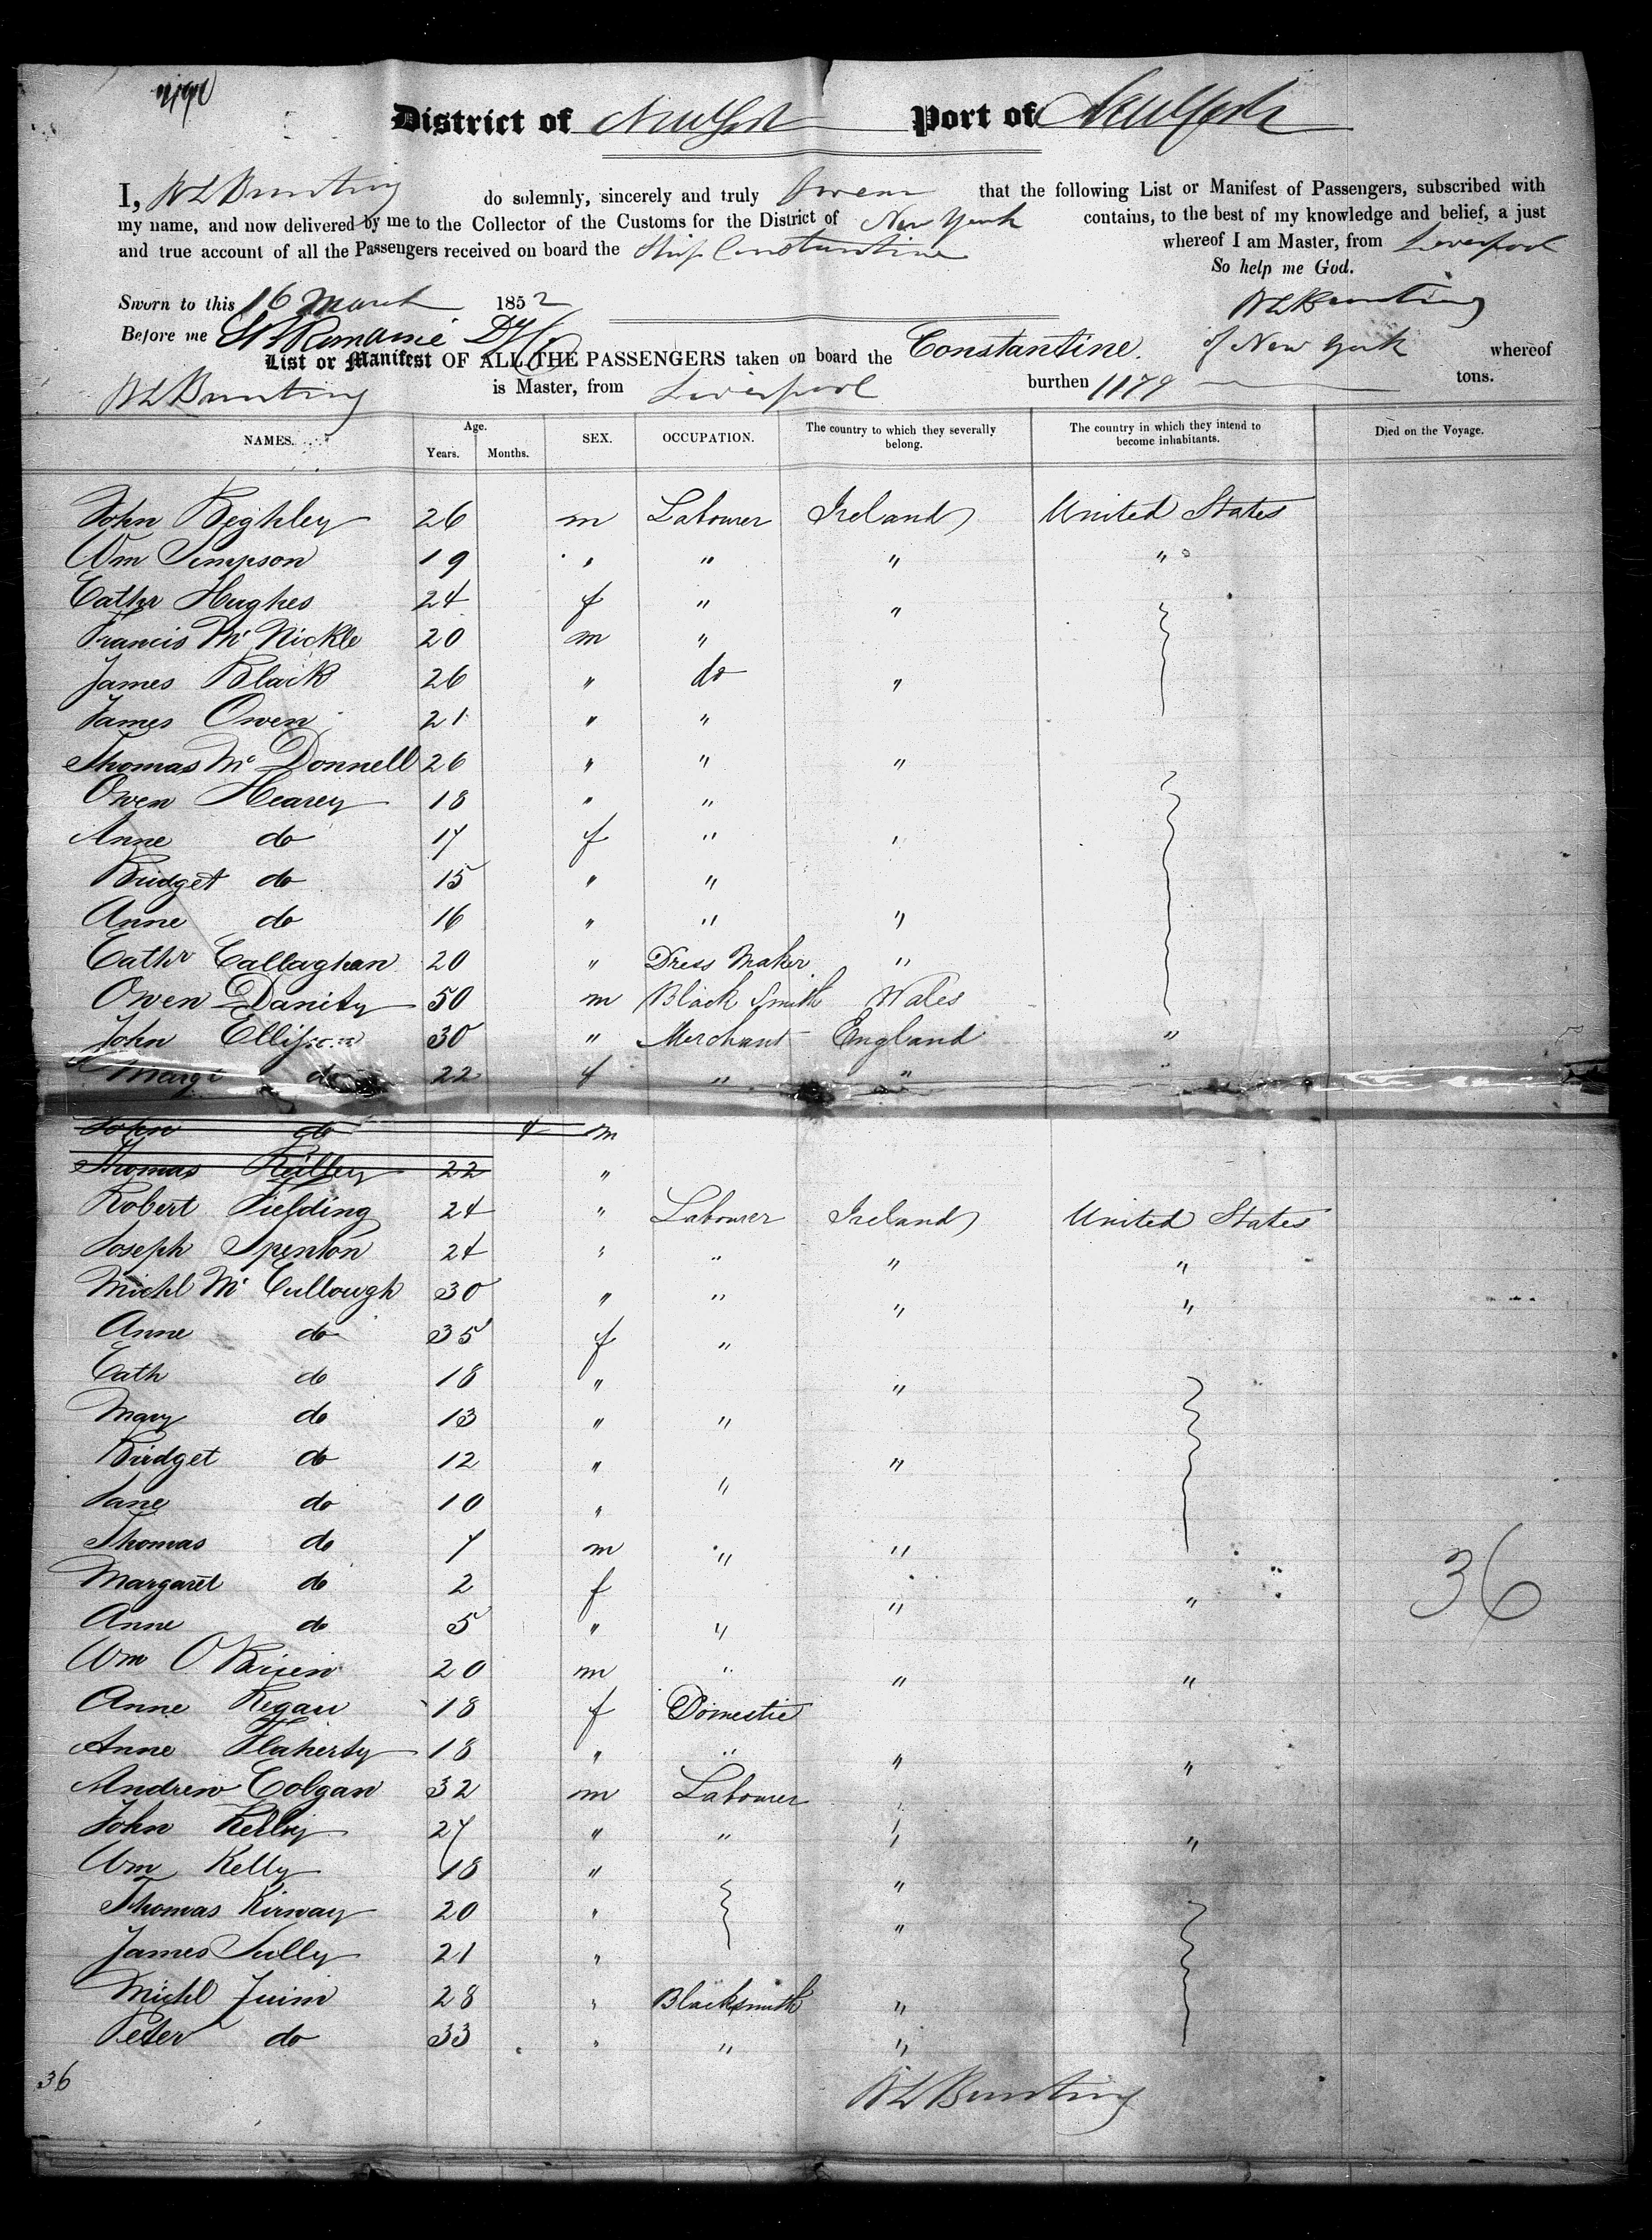 District of New York Port of New York
I, W L Bunting do solemnly, sincerely and truly Swear that the following List or Manifest of Passengers, subscribed with
my name, and now delivered by me to the Collector of the Customs for the District of New York contains, to the best of my knowledge and belief, a just
and true account of all the Passengers received on board the Ship Constantine whereof I am Master, from Liverpool
So help me God.
Sworn to this 16 March 1852 W L Bunting
Before me
List or Manifest OF ALL THE PASSENGERS taken on board the Constantine. of New York whereof
W L Bunting is Master, from Liverpool burthen 1179 tons.
NAMES. Age. Years. Months. SEX. OCCUPATION. The country to which they severally belong. The country in which they intend to become inhabitants. Died on the Voyage.
John Beghley 26 m Labourer Ireland United States
Wm Simpson 19 " " " "
Cathr Hughes 24 f " "
Francis Mc Nickle 20 m "
James Black 26 " do "
James Owen 21 " "
Thomas Mc Donnell 26 " " "
Owen Hearey 18 " "
Anne do 17 f " "
Bridget do 15 " "
Anne do 16 " " "
Cathr Callaghan 20 " Dress Maker "
Owen Danity 50 m Black Smith Wales
John Ellison 30 " Merchant England "
Margt do 22 f " " "
John do 4 m
Thomas Reilley 22 "
Robert Fielding 24 " Labourer Ireland United States
Joseph Spenton 24 " " " "
Michl Mc Cullough 30 " " " "
Anne do 35 f "
Cath do 18 " "
Mary do 13 " "
Bridget do 12 " "
Jane do 10 " "
Thomas do 7 m " "
Margaret do 2 f " "
Anne do 5 " "
Wm O Brien 20 m " " "
Anne Regan 18 f Domestic
Anne Flaherty 18 " " " "
Andrew Colgan 32 m Labourer "
John Kelly 27 " " " "
Wm Kelly 18 " "
Thomas Kirway 20 " "
James Tully 21 "
Michl Quinn 28 " Blacksmith "
Peter do 33 " " "
36
36
W L Bunting